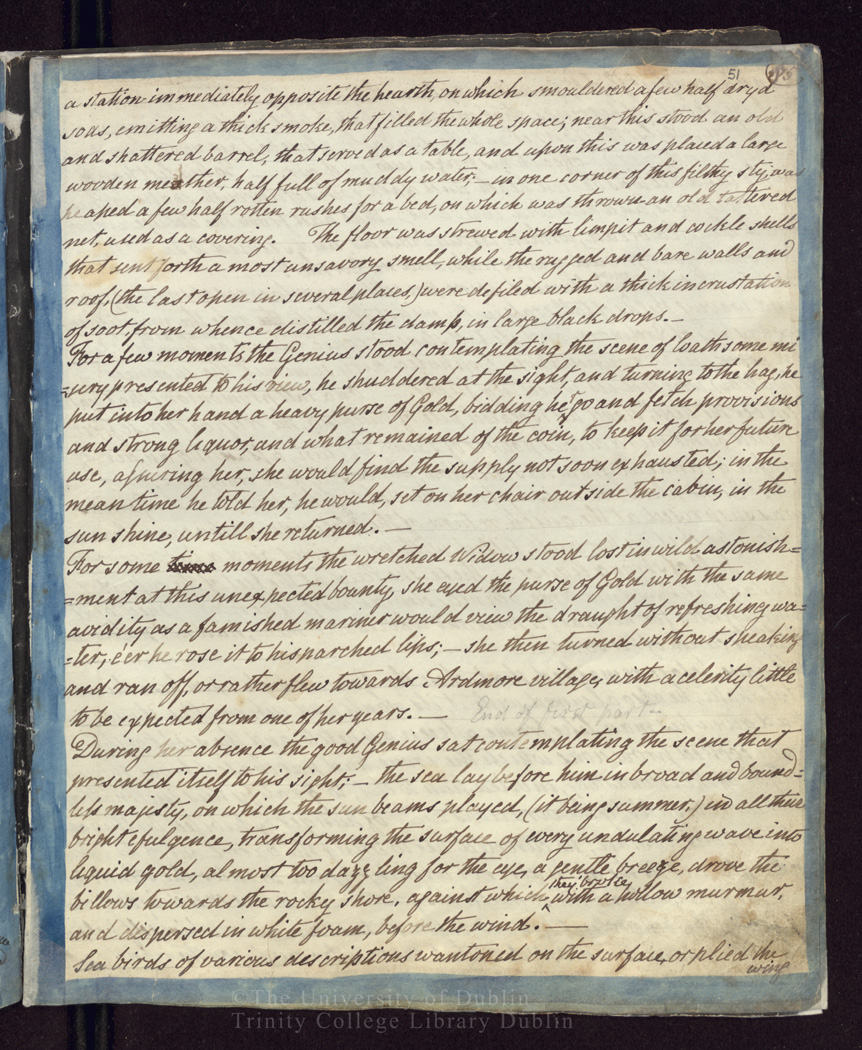 51
a station immediately opposite the hearth, on which smouldered a few half dry'd
sods, emitting a thick smoke, that filled the whole space; near this stood an old
and shattered barrel, that served as a table, and upon this was placed a large
wooden meather, half full of muddy water; — in one corner of this filthy sty, was
heaped a few half rotten rushes for a bed, on which was thrown an old tattered
net, used as a covering. The floor was strewed with limpit and cockle shells
that sent forth a most unsavory smell, while the rugged and bare walls and
roof, (the last open in several places,) were defiled with a thick incrustation
of soot, from whence distilled the damp, in large black drops. —
For a few moments the Genius stood contemplating the scene of loathsome mi
=sery presented to his view, he shuddered at the sight, and turning to the hag, he
put into her hand a heavy purse of Gold, bidding her go and fetch provisions
and strong liquor, and what remained of the coin, to keep it for her future
use, assuring her, she would find the supply not soon exhausted; in the
mean time he told her, he would, set on her chair outside the cabin, in the
sun shine, untill she returned. —
For some moments the wretched Widow stood lost in wild astonish=
=ment at this unexpected bounty, she eyed the purse of Gold with the same
avidity as a famished mariner would view the draught of refreshing wa=
=ter, e'er he rose it to his parched lips; — she then turned without speaking
and ran off, or rather flew towards Ardmore village, with a celerity little
to be expected from one of her years. — End of first part —
During her absence the good Genius sat contemplating the scene that
presented itself to his sight; — the sea lay before him in broad and bound=
less majesty, on which the sun beams played, (it being summer,) in all their
bright efulgence, transforming the surface of every undulating wave into
liquid gold, almost too dazzling for the eye, a gentle breeze, drove the
billows towards the rocky shore, against which they broke, with a hollow murmur,
and dispersed in white foam, before the wind. —
Sea birds of various descriptions wantoned on the surface, or plied the
wing
©The University of Dublin
Trinity College Library Dublin